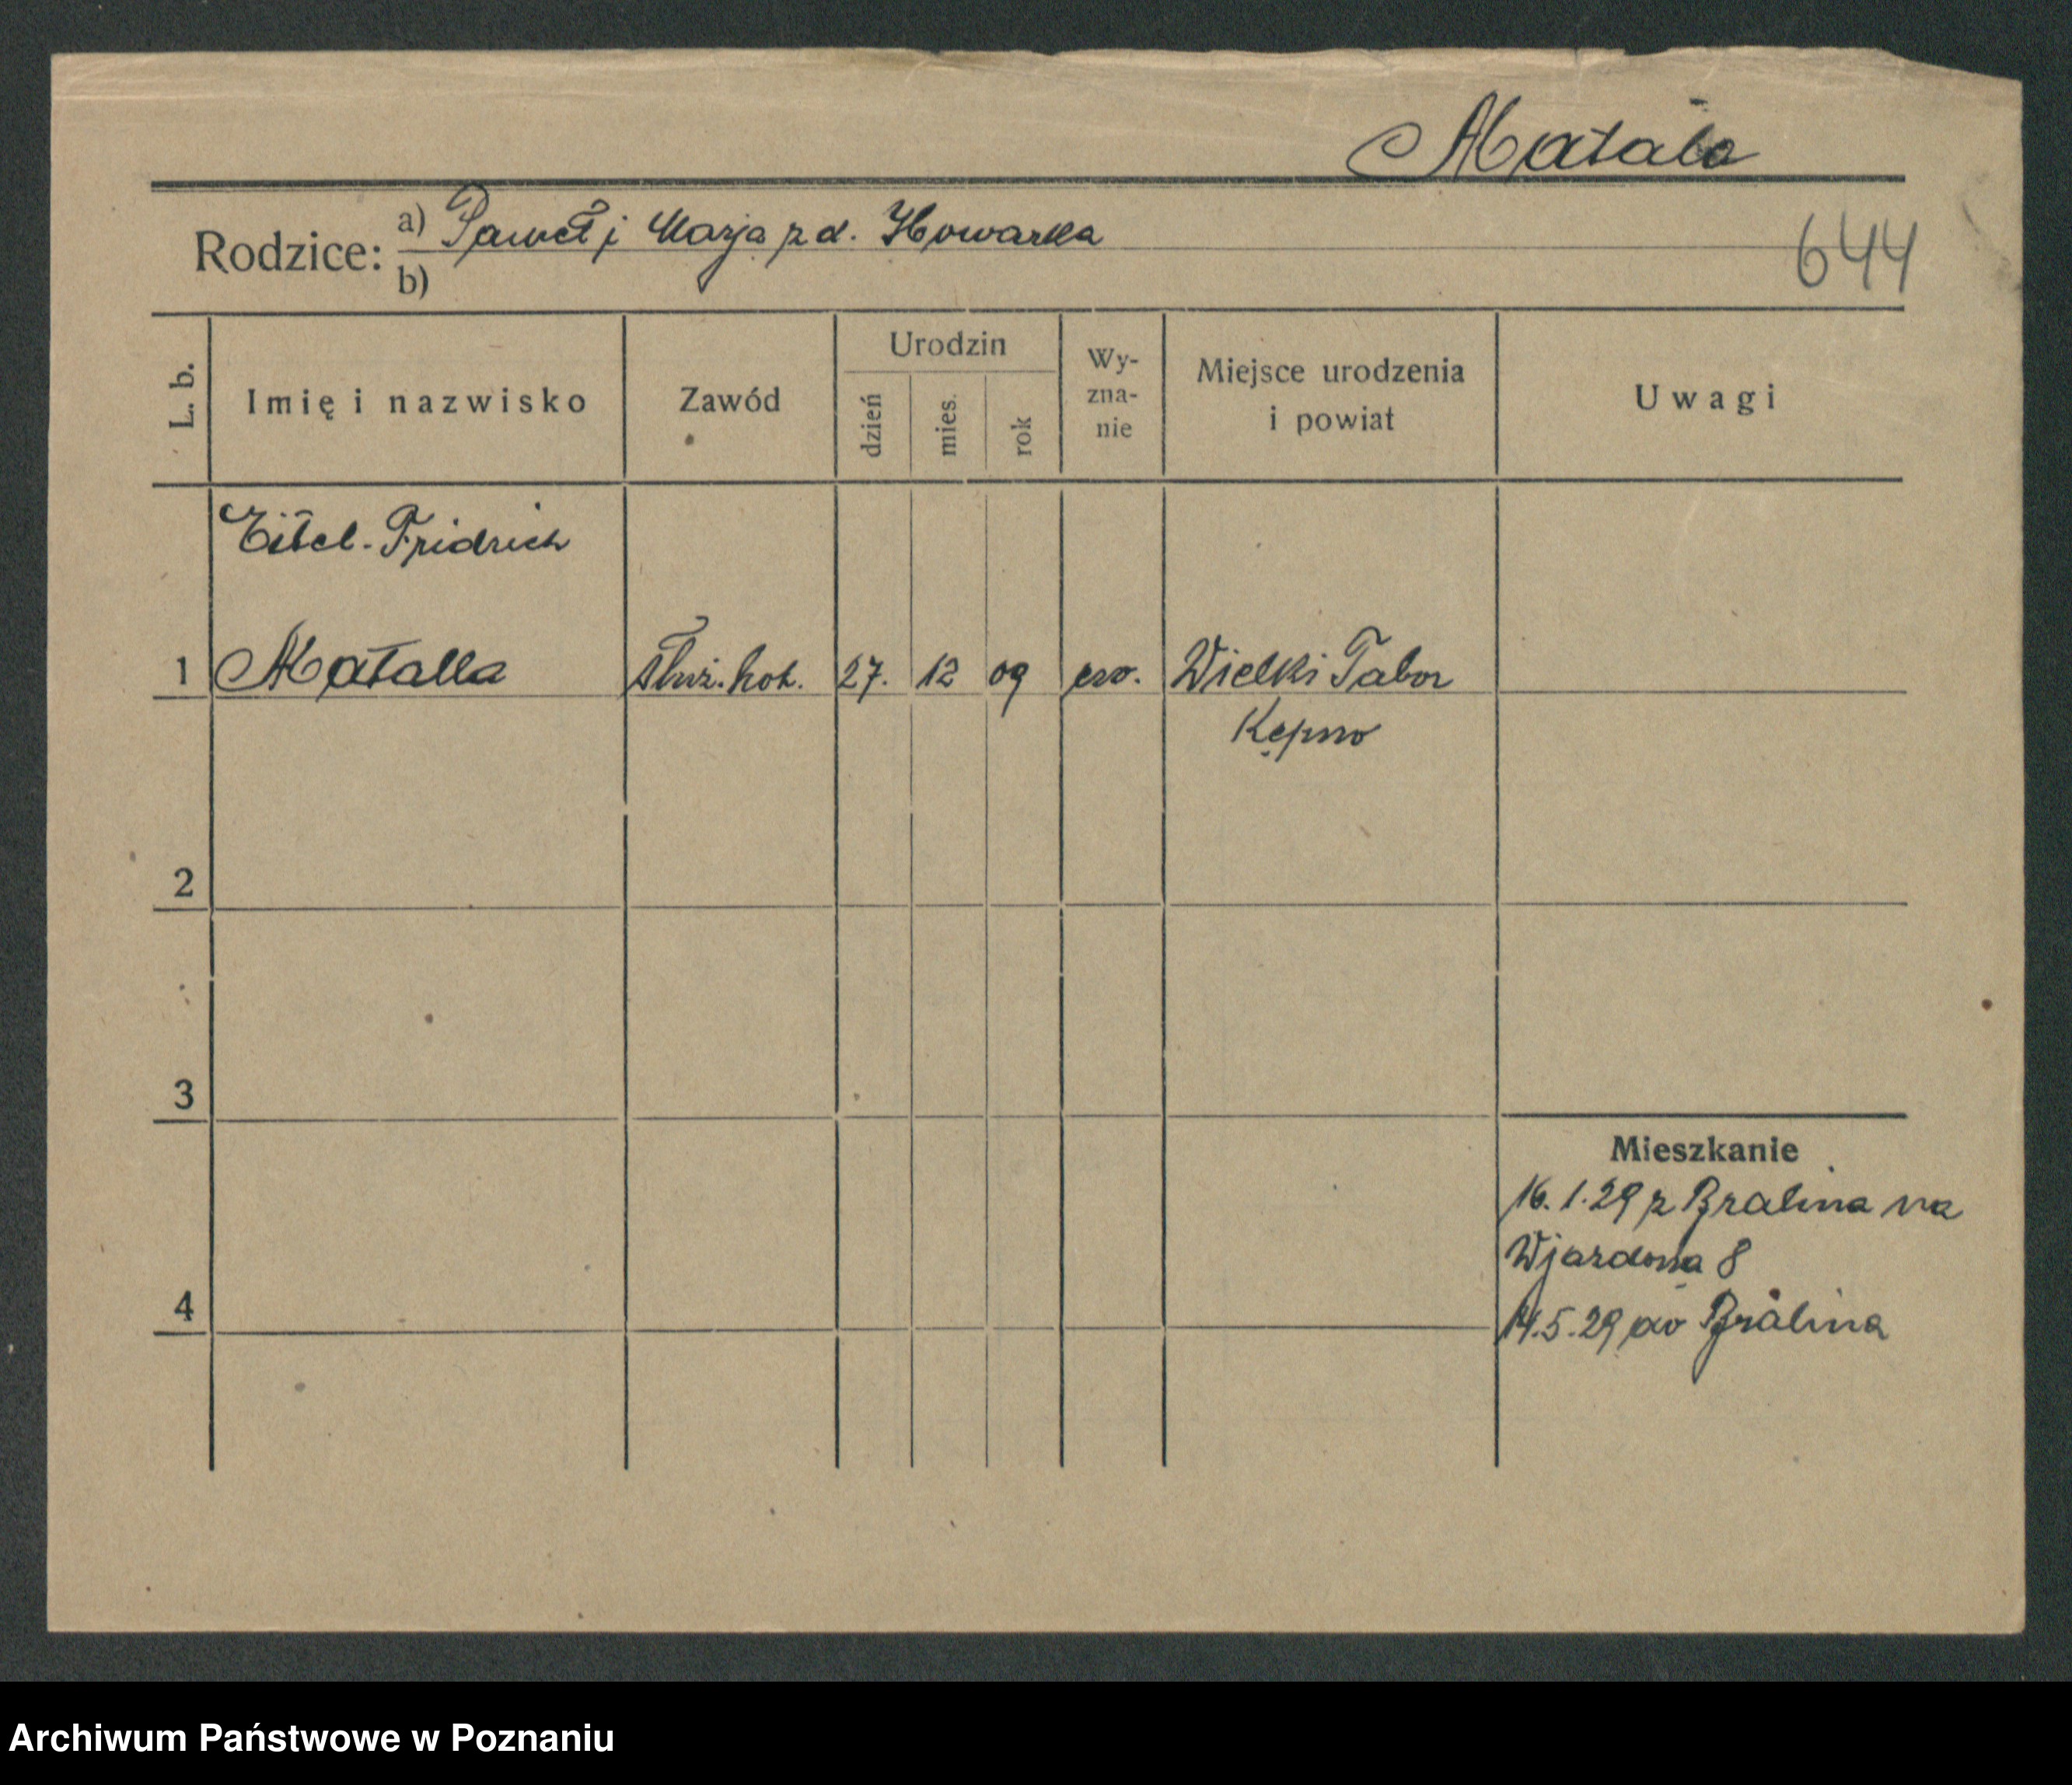 Matala
Rodzice: a) Paweł i Marja z d. Howarka
b)
644
L. b. Imię i nazwisko Zawód Urodzin dzień mies. rok Wy-zna-nie Miejsce urodzenia i powiat Uwagi
Eitel-Fridrich
1 Matalla służ. hot. 27. 12 09 ew. Wielki Tabor
Kępno
2
3
Mieszkanie
16.1.29 z Bralina na
Wjazdowa 8
4
14.5.29 do Bralina
Archiwum Państwowe w Poznaniu